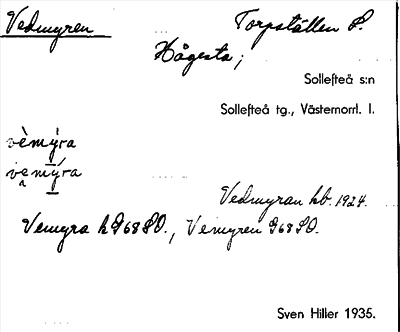 Vedmyren Torpställen S.
Hågesta;
Sollefteå s:n
Sollefteå tg., Västernorrl. l.
vèmỳra
vemýra
Vedmyran hb. 1924.
Vemyra h G68SO., Vemyren G68SO.
Sven Hiller 1935.